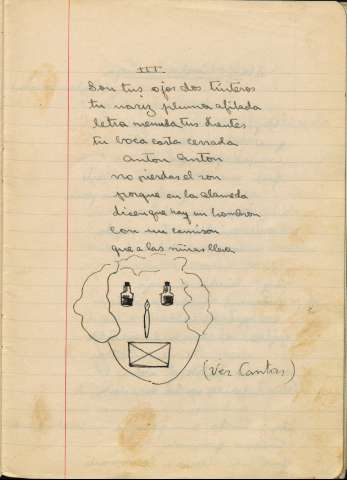 III
Son tus ojos dos tinteros
tu nariz pluma afilada
letra menuda tus dientes
tu boca carta cerrada
Anton Anton
no pierdas el son
porque en la alameda
dicen que hay un hombron
con un camison
que a las niñas lleva
(Ver Cantos)